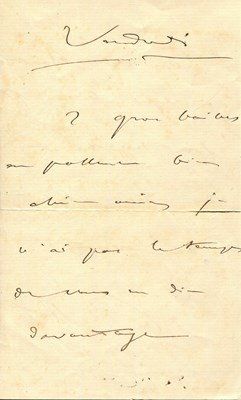 Vendredi
2 gros baisers
ma
bien
chère amie, je
n'ai pas le temps
de vous en dire
davantage